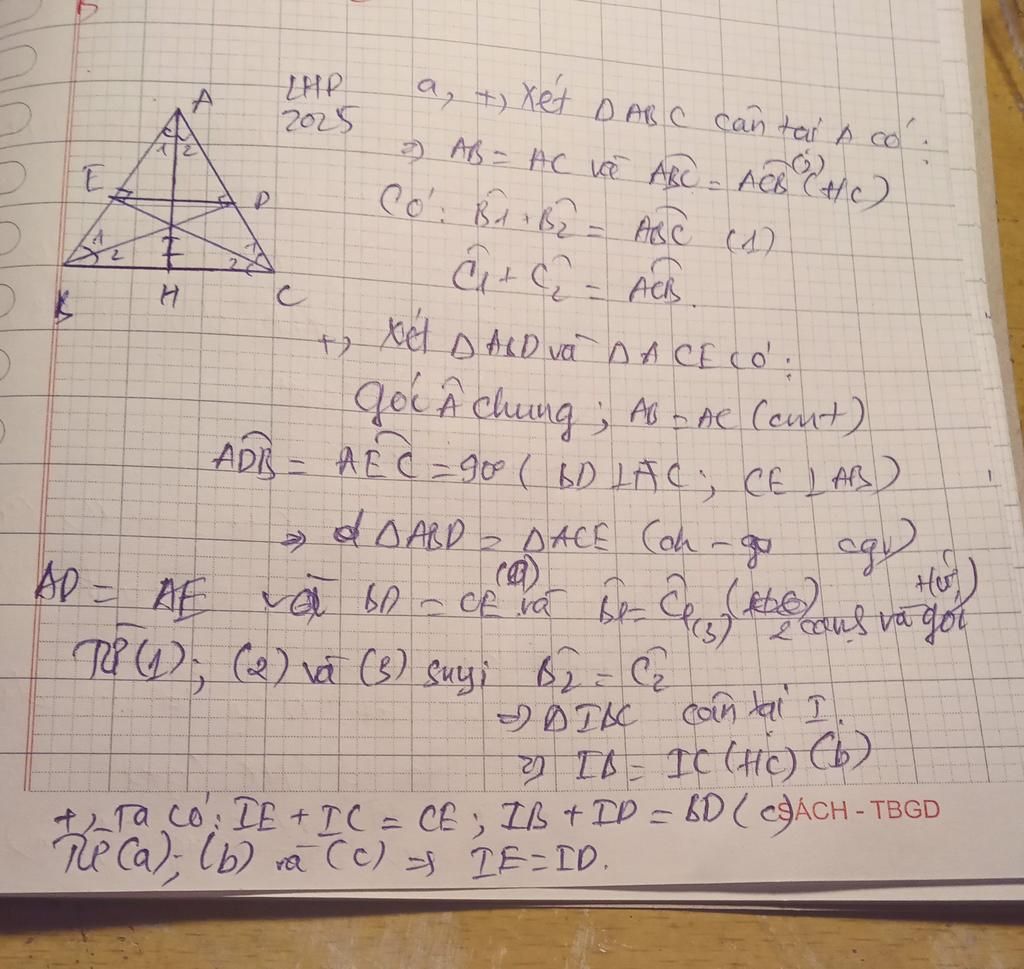 LHP
2025
A
1 2
E
D
1 2
I
2 1
B
H
C
a, +, Xét ΔABC cân tại A có:
=> AB = AC và ABC^ = ACB^ (2) (t/c)
Có: B1^ + B2^ = ABC^ (1)
C1^ + C2^ = ACB^.
+, Xét ΔABD và ΔACE có:
góc Â chung; AB = AC (cmt)
ADB^ = AEC^ = 90° ( BD ⊥ AC; CE ⊥ AB)
=> ΔABD = ΔACE (ch - cgv)
AD = AE và BD = CE (a) và B1^ = C1^ (3) (2 cạnh và góc t/ứ)
Từ (1); (2) và (3) suy B2^ = C2^
=> ΔIBC cân tại I.
=> IB = IC (t/c) (b)
+, Ta có: IE + IC = CE; IB + ID = BD (c) SÁCH - TBGD
Từ (a); (b) và (c) => IE = ID.